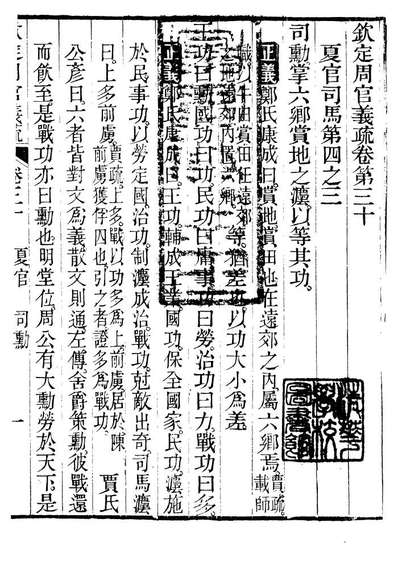 欽定周官義疏卷第三十
夏官司馬第四之三
司勳掌六鄉賞地之灋以等其功
正義鄭氏康成曰賞地賞田也在遠郊之內屬六鄉焉賈疏載師
職以牛田賞田任遠郊
之地 等猶差也以功大小為差
王功曰勳國功曰功民功曰庸事功曰勞治功曰力戰功曰多
正義鄭氏康成曰王功輔成王業國功保全國家民功灋施
於民事功以勞定國治功制灋成治戰功剋敵出奇司馬灋
曰上多前虜賈疏上多戰以功多為上前虜居於陳前虜獲俘四也引之者證多為戰功賈氏
公彥曰六者皆對文為義散文則通左傳舍爵策勳彼戰還
而飲至是戰功亦曰勳也明堂位周公有大勳勞於天下是
欽定周官義疏 卷三十 夏官 司勳 一